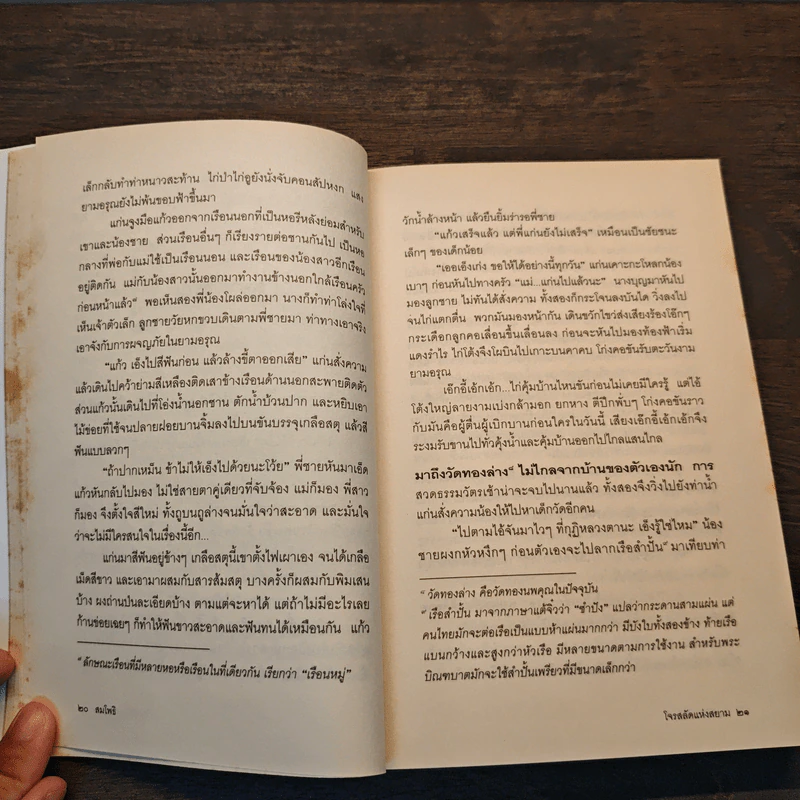 เล็กกลับทำท่าหนาวสะท้าน ไก่ป่าไก่อูยังนั่งจับคอนสัปหงก แสง
ยามอรุณยังไม่พ้นขอบฟ้าขึ้นมา
แก่นจูงมือแก้วออกจากเรือนนอกที่เป็นหอรีหลังย่อมสำหรับ
เขาและน้องชาย ส่วนเรือนอื่นๆ ก็เรียงรายต่อชานกันไป เป็นหอ
กลางที่พ่อกับแม่ใช้เป็นเรือนนอน และเรือนของน้องสาวอีกเรือน
อยู่ติดกัน แม่กับน้องสาวนั้นออกมาทำงานข้างนอกใกล้เรือนครัว
ก่อนหน้าแล้ว๘ พอเห็นสองพี่น้องโผล่ออกมา นางก็ทำท่าโล่งใจที่
เห็นเจ้าตัวเล็ก ลูกชายวัยหกขวบเดินตามพี่ชายมา ท่าทางเอาจริง
เอาจังกับการผจญภัยในยามอรุณ
“แก้ว เอ็งไปสีฟันก่อน แล้วล้างขี้ตาออกเสีย” แก่นสั่งความ
แล้วเดินไปคว้าย่ามสีเหลืองติดเสาข้างเรือนด้านนอกสะพายติดตัว
ส่วนแก้วนั้นเดินไปที่โอ่งน้ำนอกชาน ตักน้ำบ้วนปาก และหยิบเอา
ไม้ข่อยที่ใช้จนปลายฝอยบานจิ้มลงไปบนขันบรรจุเกลือสตุ แล้วสี
ฟันแบบลวกๆ
“ถ้าปากเหม็น ข้าไม่ให้เอ็งไปด้วยนะโว้ย” พี่ชายหันมาเอ็ด
แก้วหันกลับไปมอง ไม่ใช่สายตาคู่เดียวที่จับจ้อง แม่ก็มอง พี่สาว
ก็มอง จึงตั้งใจสีใหม่ ทั้งถูบนถูล่างจนมั่นใจว่าสะอาด และมั่นใจ
ว่าจะไม่มีใครสนใจในเรื่องนี้อีก...
แก่นมาสีฟันอยู่ข้างๆ เกลือสตุนี้เขาตั้งไฟเผาเอง จนได้เกลือ
เม็ดสีขาว และเอามาผสมกับสารส้มสตุ บางครั้งก็ผสมกับพิมเสน
บ้าง ผงถ่านป่นละเอียดบ้าง ตามแต่จะหาได้ แต่ถ้าไม่มีอะไรเลย
ก้านข่อยเฉยๆ ก็ทำให้ฟันขาวสะอาดและฟันทนได้เหมือนกัน แก้ว
๘ ลักษณะเรือนที่มีหลายหอหรือเรือนในที่เดียวกัน เรียกว่า “เรือนหมู่”
๒๐ สมโพธิ
วักน้ำล้างหน้า แล้วยืนยิ้มร่ารอพี่ชาย
“แก้วเสร็จแล้ว แต่พี่แก่นยังไม่เสร็จ” เหมือนเป็นชัยชนะ
เล็กๆ ของเด็กน้อย
“เออเอ็งเก่ง ขอให้ได้อย่างนี้ทุกวัน” แก่นเคาะกะโหลกน้อง
เบาๆ ก่อนหันไปทางครัว “แม่...แก่นไปแล้วนะ” นางบุญมาหันไป
มองลูกชาย ไม่ทันได้สั่งความ ทั้งสองก็กระโจนลงบันได วิ่งลงไป
จนไก่แตกตื่น พวกมันมองหน้ากัน เดินขวักไขว่ส่งเสียงร้องโอ๊กๆ
กระเดือกลูกคอเลื่อนขึ้นเลื่อนลง ก่อนจะหันไปมองท้องฟ้าเริ่ม
แดงรำไร ไก่โต้งจึงโผบินไปเกาะบนคาคบ โก่งคอขันรับตะวันงาม
ยามอรุณ
เอ๊กอี้เอ้กเอ้ก...ไก่คุ้มบ้านไหนขันก่อนไม่เคยมีใครรู้ แต่ไอ้
โต้งใหญ่ลายงามเบ่งกล้ามอก ยกหาง ตีปีกพั่บๆ โก่งคอขันราว
กับมันคือผู้ตื่นผู้เบิกบานก่อนใครในวันนี้ เสียงเอ้กอี้เอ้กเอ้กจึง
ระงมรับขานไปทั่วคุ้งน้ำและคุ้มบ้านออกไปไกลแสนไกล
มาถึงวัดทองล่าง๙ ไม่ไกลจากบ้านของตัวเองนัก การ
สวดธรรมวัตรเช้าน่าจะจบไปนานแล้ว ทั้งสองจึงวิ่งไปยังท่าน้ำ
แก่นสั่งความน้องให้ไปหาเด็กวัดอีกคน
“ไปตามไอ้จันมาไวๆ ที่กุฏิหลวงตานะ เอ็งรู้ใช่ไหม” น้อง
ชายผงกหัวหงึกๆ ก่อนตัวเองจะไปลากเรือสำปั้น๑๐ มาเทียบท่า
๙ วัดทองล่าง คือวัดทองนพคุณในปัจจุบัน
๑๐ เรือสำปั้น มาจากภาษาแต้จิ๋วว่า “ซำปัง” แปลว่ากระดานสามแผ่น แต่
คนไทยมักจะต่อเรือเป็นแบบห้าแผ่นมากกว่า มีบังใบทั้งสองข้าง ท้ายเรือ
แบนกว้างและสูงกว่าหัวเรือ มีหลายขนาดตามการใช้งาน สำหรับพระ
บิณฑบาตมักจะใช้สำปั้นเพรียวที่มีขนาดเล็กกว่า
โจรสลัดแห่งสยาม ๒๑